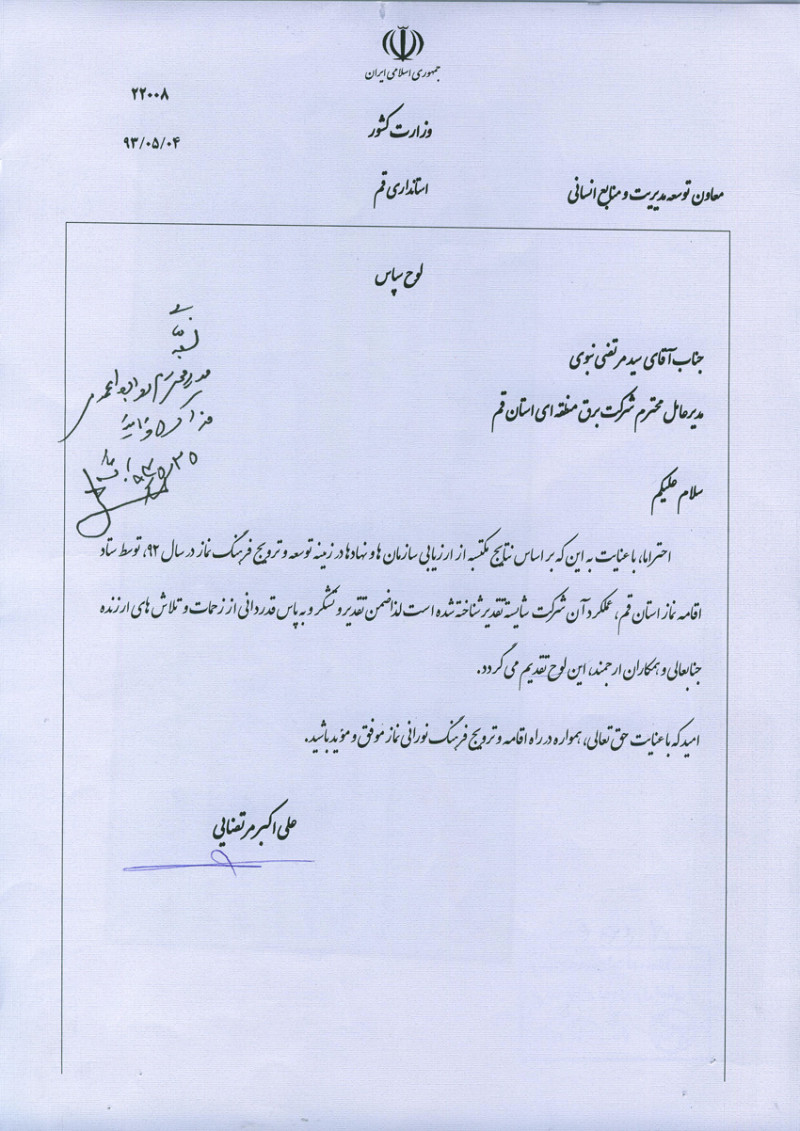 جمهوری اسلامی ایران
۲۲۰۰۸
وزارت کشور
۹۳/۰۵/۰۴
استانداری قم
معاون توسعه مدیریت و منابع انسانی
لوح سپاس
جناب آقای سید مرتضی نبوی
مدیرعامل محترم شرکت برق منطقه ای استان قم
سلام علیکم
احتراما، با عنایت به این که بر اساس نتایج مکتسبه از ارزیابی سازمان ها و نهادها در زمینه توسعه و ترویج فرهنگ نماز در سال ۹۲، توسط ستاد
اقامه نماز استان قم، عملکرد آن شرکت شایسته تقدیر شناخته شده است لذا ضمن تقدیر و تشکر و به پاس قدردانی از زحمات و تلاش های ارزنده
جنابعالی و همکاران ارجمند، این لوح تقدیم می گردد.
امید که با عنایت حق تعالی، همواره در راه اقامه و ترویج فرهنگ نورانی نماز موفق و مؤید باشید.
علی اکبر مرتضایی